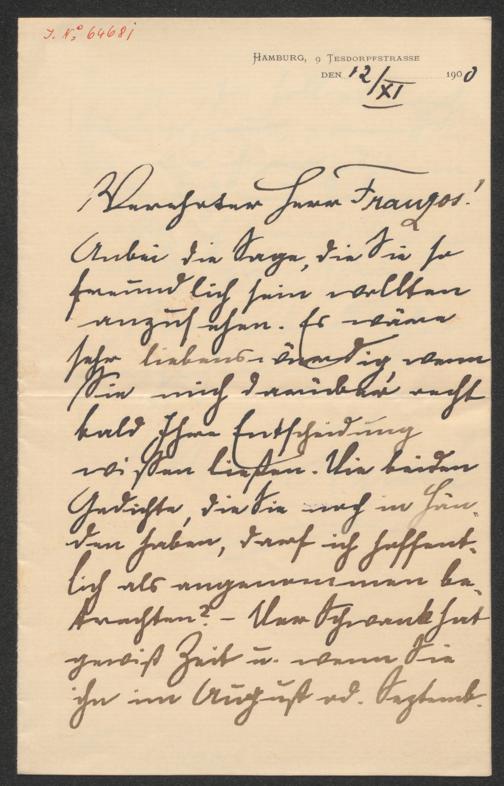 J. No 64681
HAMBURG, 9 TESDORPFSTRASSE
DEN 12/XI 1900
Verehrter Herr Franzos!
Anbei die Sage, die Sie so
freundlich sein wollten
anzusehen. Es wäre
sehr liebenswürdig, wenn
Sie mich darüber recht
bald Ihre Entscheidung
wissen ließen. Die beiden
Gedichte, die Sie noch in Hän-
den haben, darf ich hoffent-
lich als angenommen be-
trachten? – Der Schwank hat
gewiß Zeit u. wenn Sie
ihn im August od. Septemb.